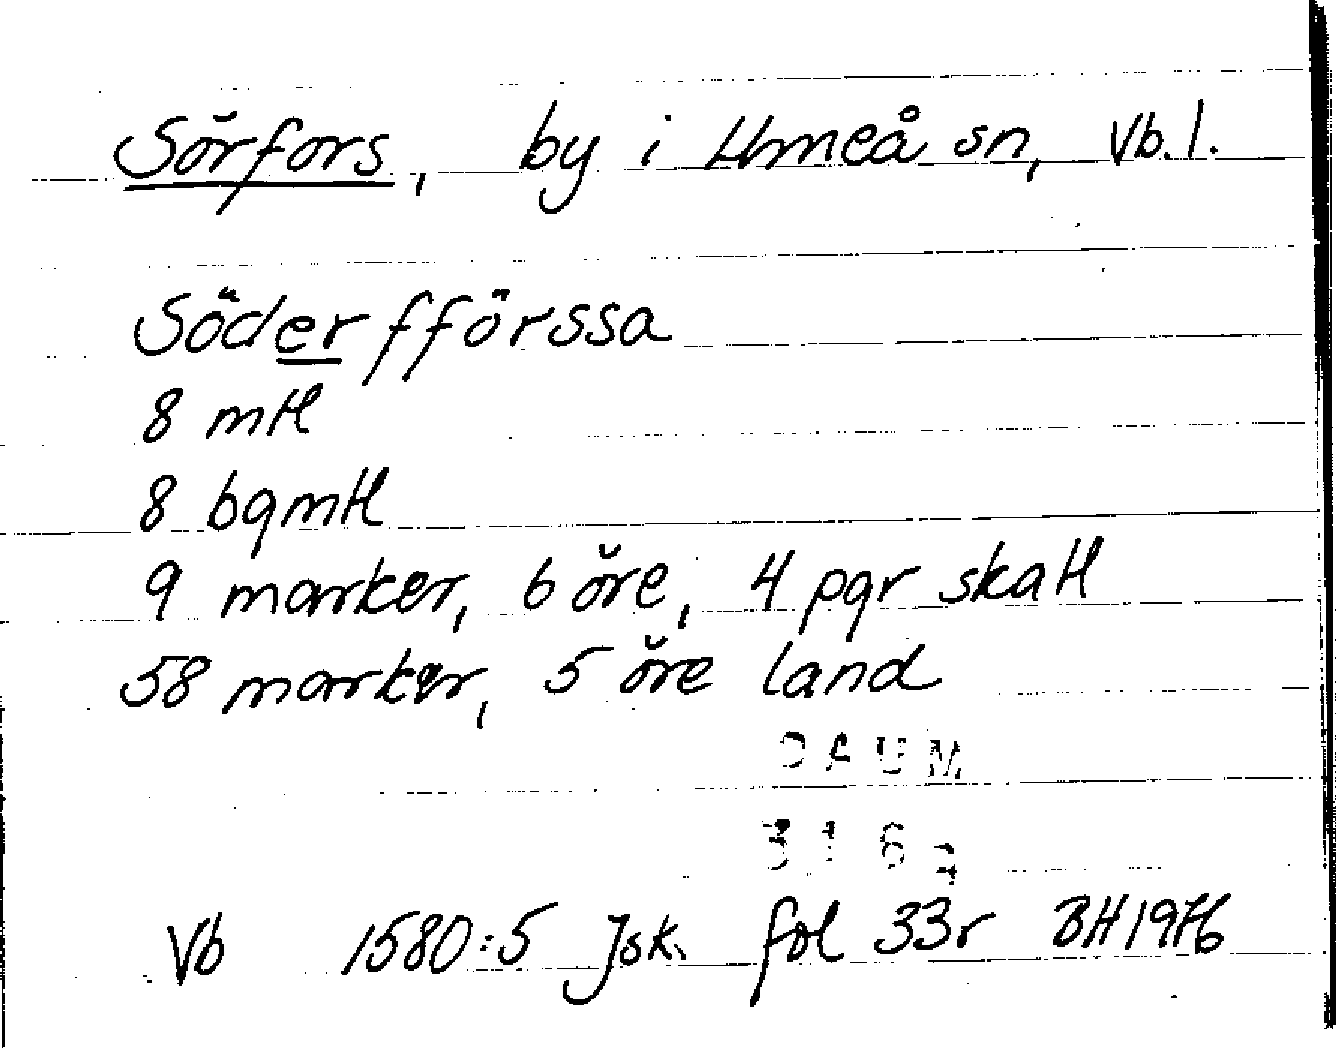 Sörfors, by i Umeå sn, Vb. l.
Söderfförssa
8 mtl
8 bqmtl
9 marker, 6 öre, 4 pqr skatt
58 marker, 5 öre land
DAUM
316
Vb 1580:5 Jsk. fol 33r BH1976